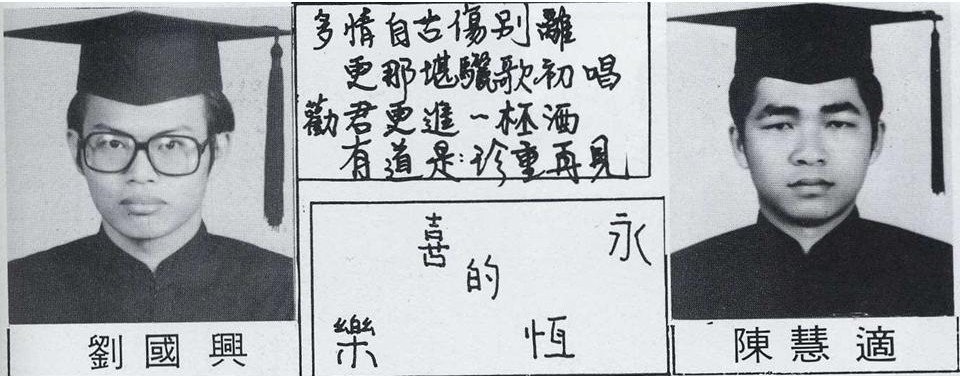 多情自古傷別離
更那堪驪歌初唱
勸君更進一杯酒
有道是:珍重再見
永恆的喜樂
劉國興
陳慧適